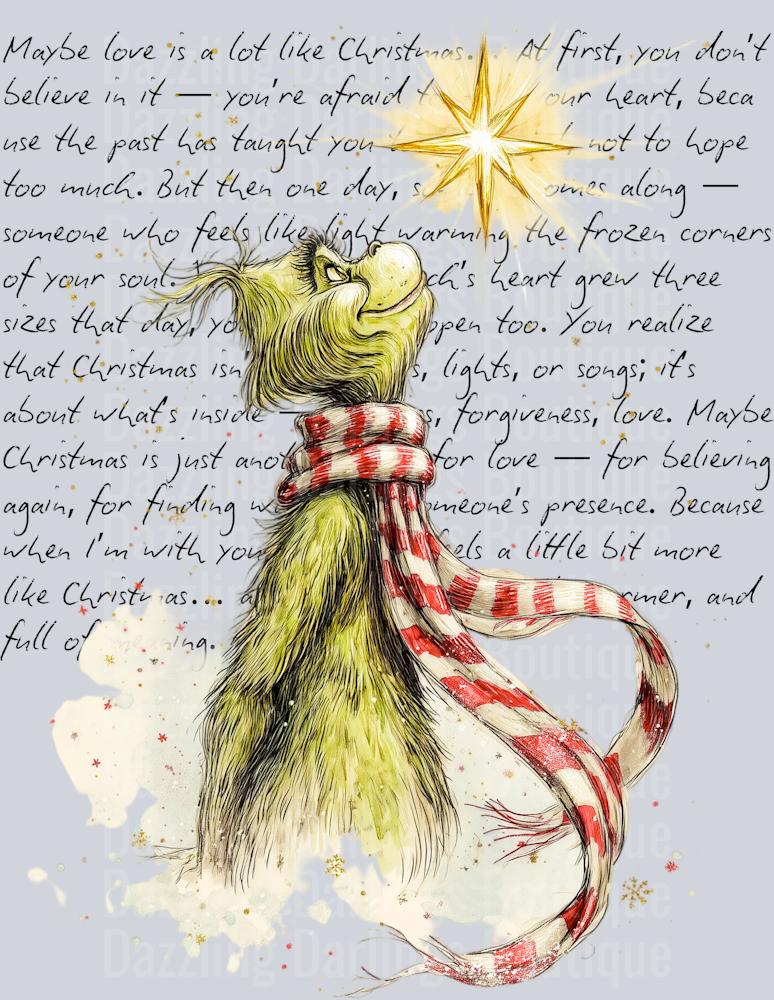 Maybe love is a lot like Christmas... At first, you don't
believe in it — you're afraid our heart, beca
use the past has taught you not to hope
too much. But then one day, comes along —
someone who feels like light warming the frozen corners
of your soul. heart grew three
sizes that day, open too. You realize
that Christmas lights, or songs; it's
about what's inside — forgiveness, love. Maybe
Christmas is just for love — for believing
again, for finding someone's presence. Because
when I'm with you a little bit more
like Christmas... and
full of meaning.
Dazzling Darlings Boutique